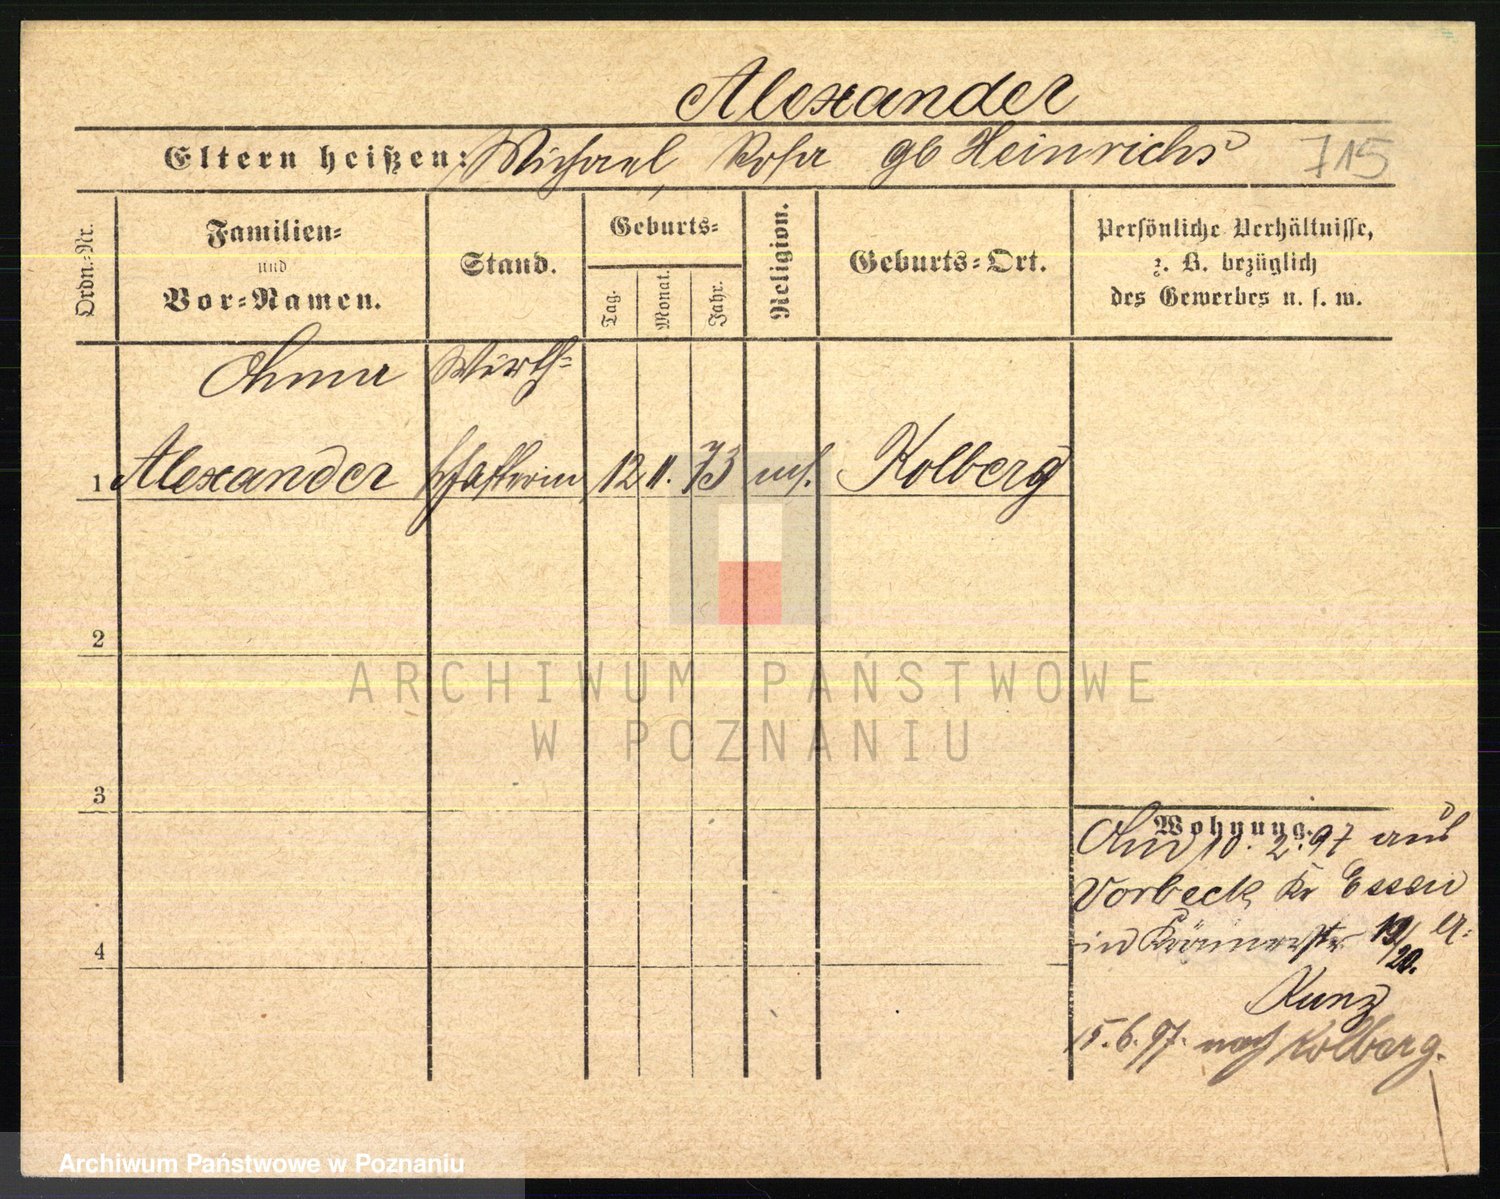 Alexander
Eltern heißen: Michael, Rosa gb Heinrichs 715
Ordn.-Nr.
Familien-
und
Vor-Namen.
Stand.
Geburts-
Tag.
Monat.
Jahr.
Religion.
Geburts-Ort.
Persönliche Verhältnisse,
z. B. bezüglich
des Gewerbes u. s. w.
Anna Wirth-
1 Alexander schafterin 12 11. 73 mos. Kolberg
2
3
4
Wohnung.
10. 2. 97 aus
Vorbeck Kr Essen
in 19/20.
Kunz
15. 6. 97. nach Kolberg.
ARCHIWUM PAŃSTWOWE
W POZNANIU
Archiwum Państwowe w Poznaniu